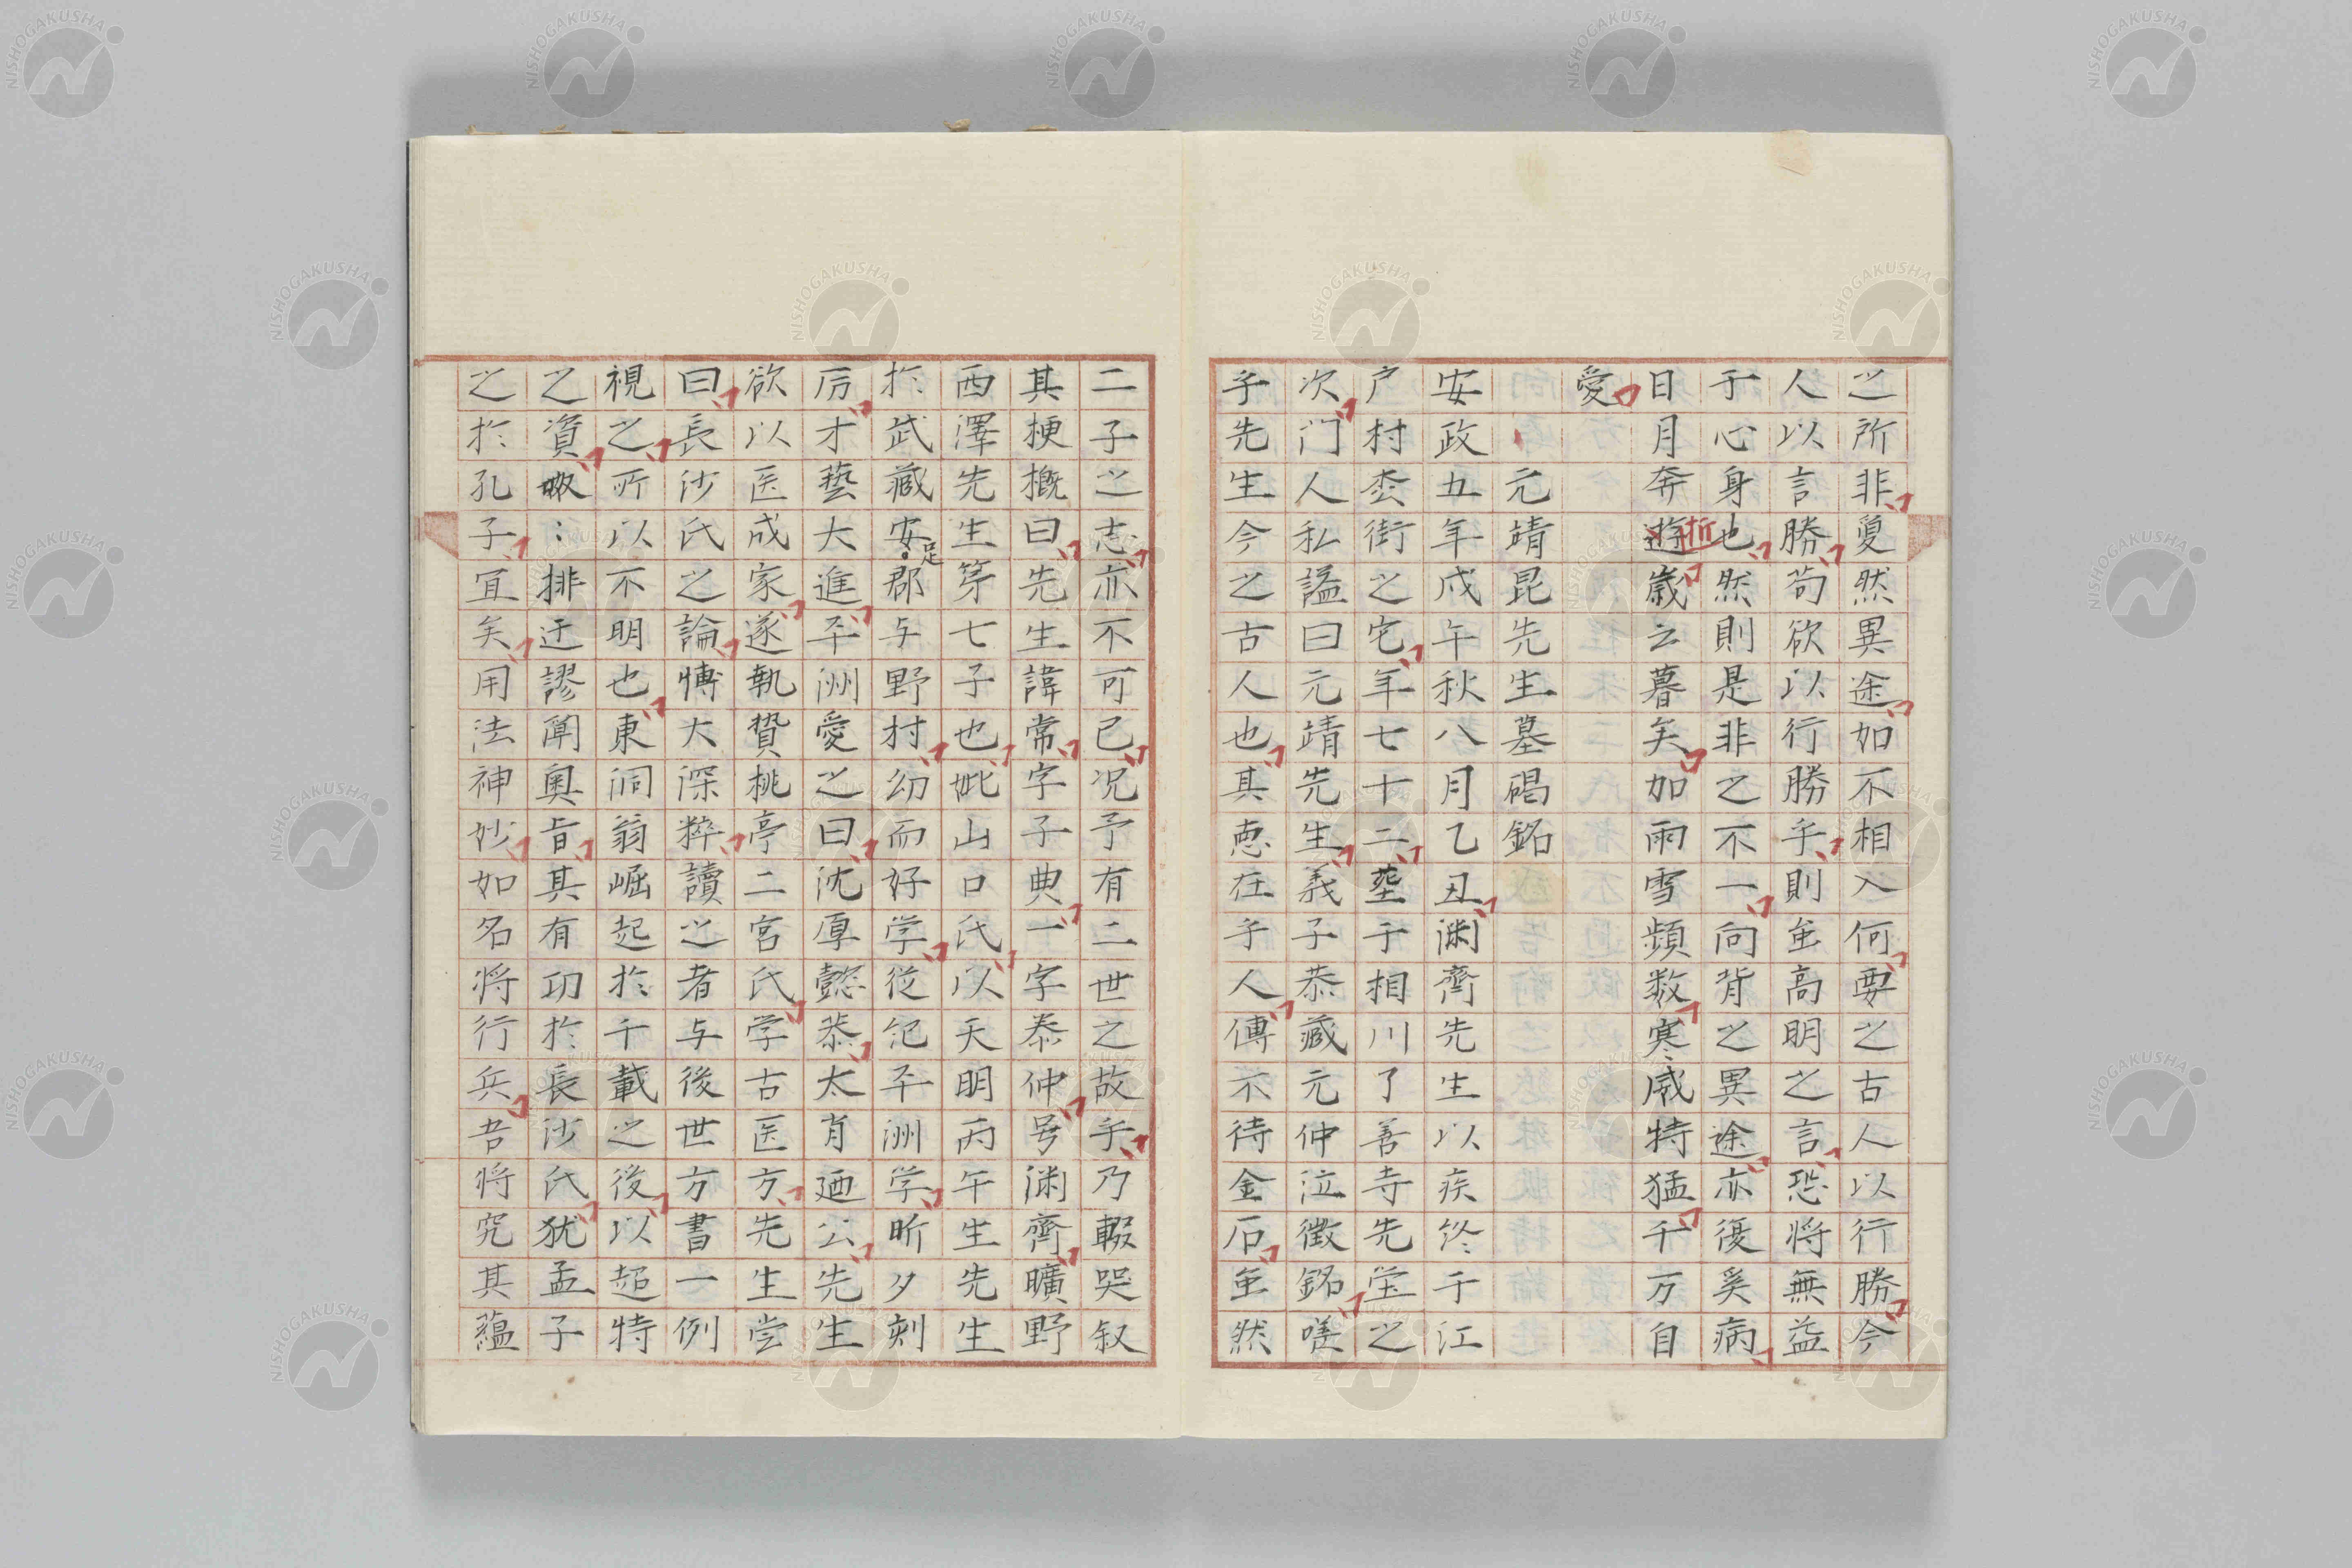 之所非戛然異途如不相入何要之古人以行勝今
人以言勝苟欲以行勝乎則至高明之言恐将無益
于心身也然則是非之不一向背之異途亦復奚病
日月奔遊歳云暮矣如雨雪頻数寒威特猛千万自
折
愛
元靖昆先生墓碣銘
安政五年戊午秋八月乙丑渊齊先生以疾终于江
户村枩街之宅年七十二塟于相川了善寺先茔之
次门人私謚曰元靖先生義子恭藏元仲泣徴銘嗟
乎先生今之古人也其恵在乎人傳不待金石至然
二子之志亦不可已况予有二世之故乎乃輟哭叙
其梗概曰先生諱常字子典一字泰仲号渊齊曠野
西澤先生第七子也妣山口氏以天明丙午生先生
於武藏安郡与野村幼而好学従祀平洲学昕夕刻
足
厉才藝大進平洲愛之曰沈厚懿恭太肖廼公先生
欲以医成家遂執贄桃亭二宮氏学古医方先生尝
曰長沙氏之論博大深粹讀之者与後世方書一例
視之所以不明也東洞翁崛起於千載之後以超特
之資排迂謬闡奥旨其有功於長沙氏犹孟子
之於孔子宜矣用法神妙如名将行兵吾将究其蘊